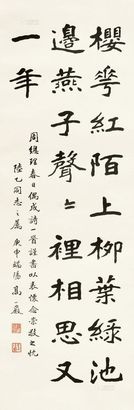 櫻花紅陌上柳葉綠池
邊燕子聲〻裡相思又
一年
周總理春日偶成詩一首謹書以表懷念崇敬之忱
陸乙同志之屬 庚申端陽 萬一嚴